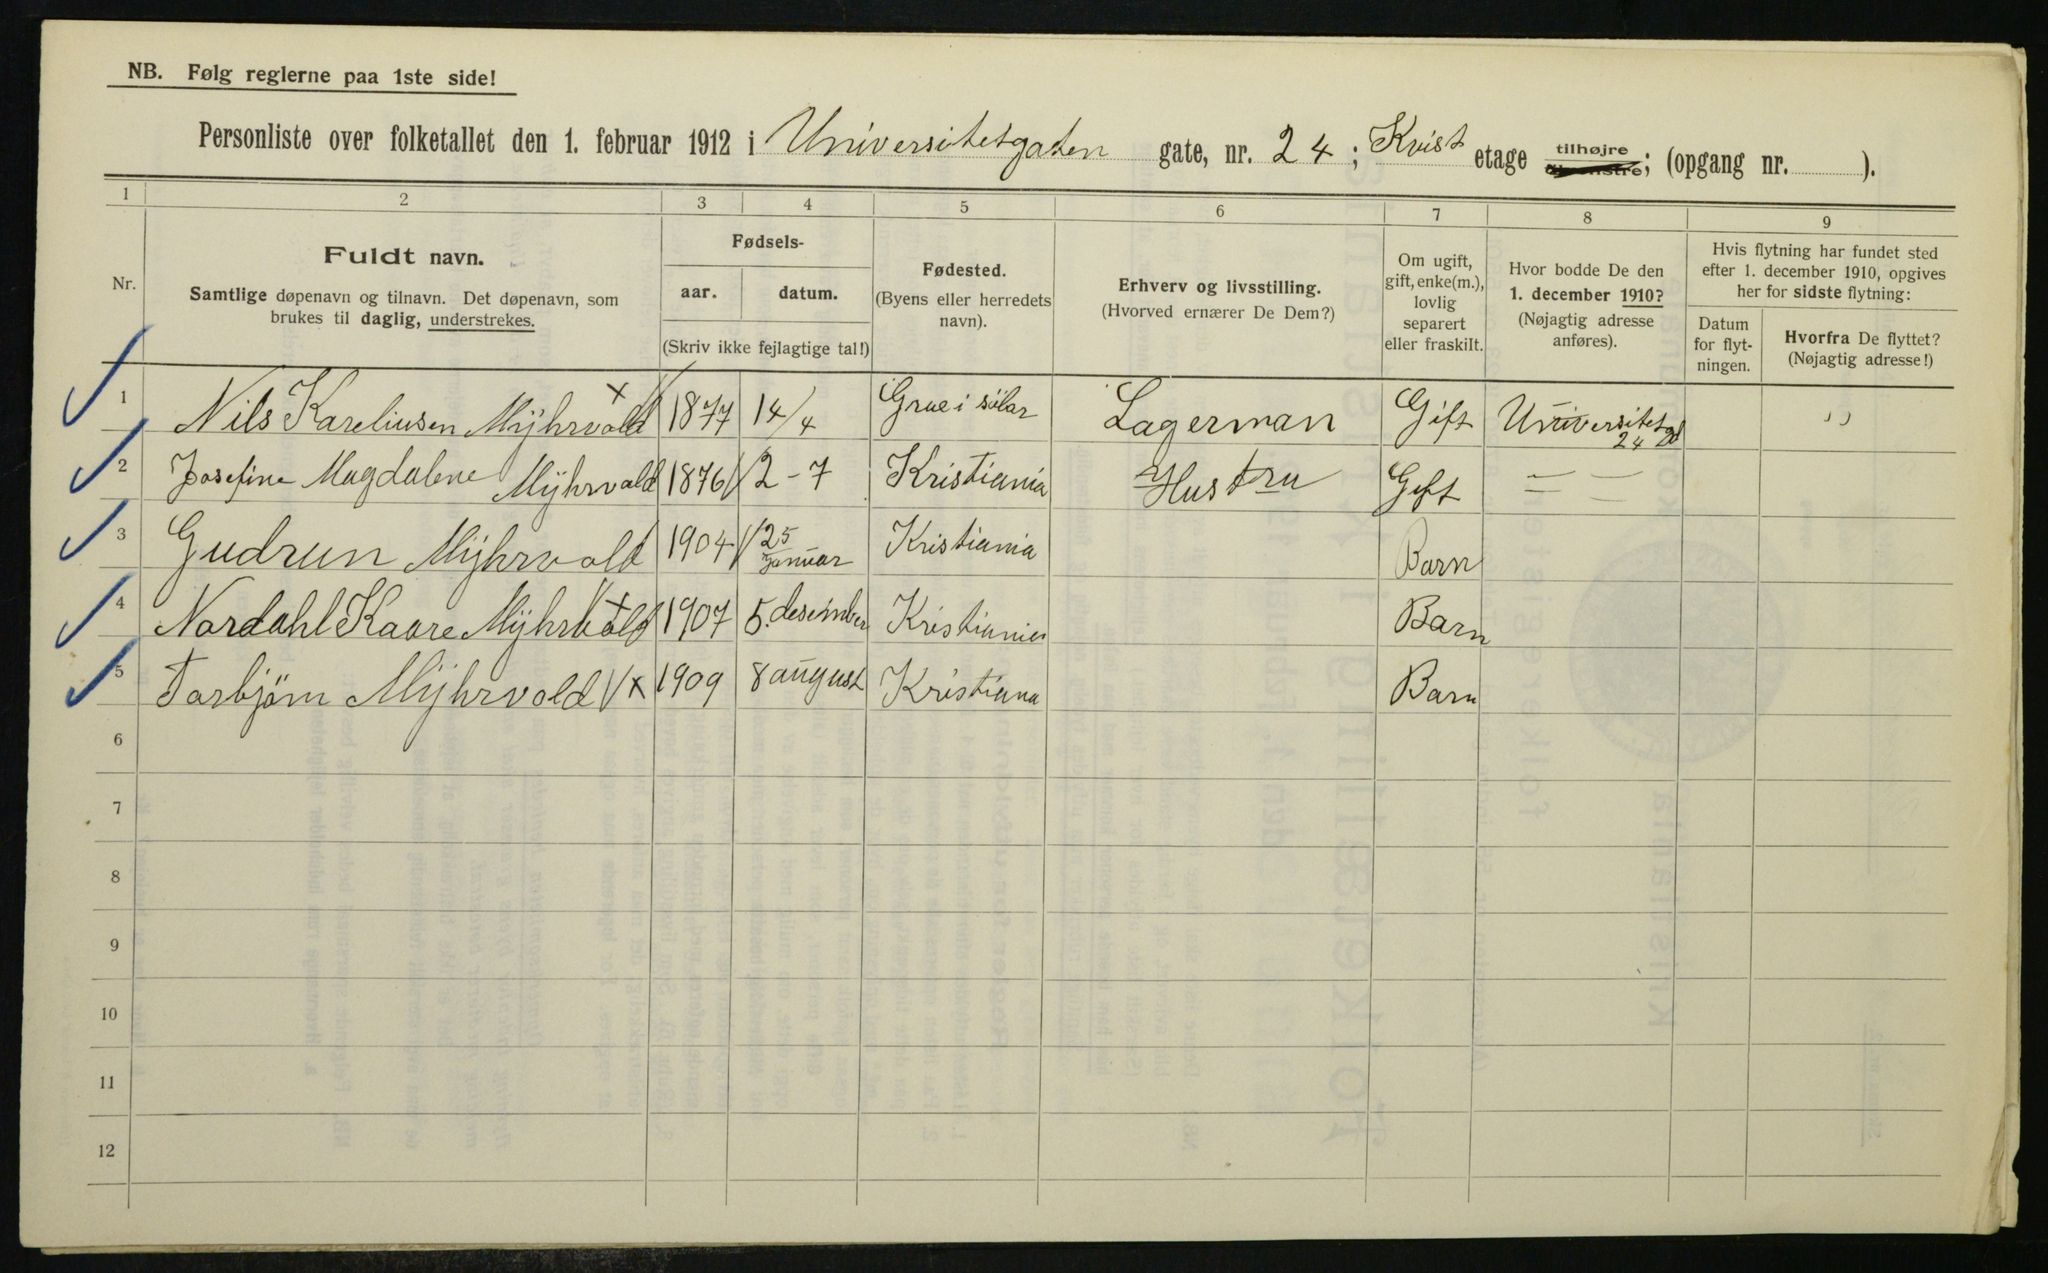 NB. Følg reglerne paa 1ste side!
Personliste over folketallet den 1. februar 1912 i Universitetsgaten gate, nr. 24; Kvist etage tilhøjre tilvenstre; (opgang nr. ).
1 2 3 4 5 6 7 8 9
Nr.
Fuldt navn.
Samtlige døpenavn og tilnavn. Det døpenavn, som
brukes til daglig, understrekes.
Fødsels-
aar. datum.
(Skriv ikke fejlagtige tal!)
Fødested.
(Byens eller herredets
navn).
Erhverv og livsstilling.
(Hvorved ernærer De Dem?)
Om ugift,
gift, enke(m.),
lovlig
separert
eller fraskilt.
Hvor bodde De den
1. december 1910?
(Nøjagtig adresse
anføres).
Hvis flytning har fundet sted
efter 1. december 1910, opgives
her for sidste flytning:
Datum
for flyt-
ningen.
Hvorfra De flyttet?
(Nøjagtig adresse!)
1 Nils Kareliusen Mÿhrvold 1877 14/4 Grue i sölør Lagerman Gift Universitetsgd 24 "
2 Josefine Magdalene Mÿhrvold 1876 2-7 Kristiania Hustru Gift — —
3 Gudrun Mÿhrvold 1904 25 Januar Kristiania Barn
4 Nordahl Kaare Mÿhrvold 1907 5. desember Kristiania Barn
5 Torbjörn Mÿhrvold 1909 8 august Kristiana Barn
6
7
8
9
10
11
12